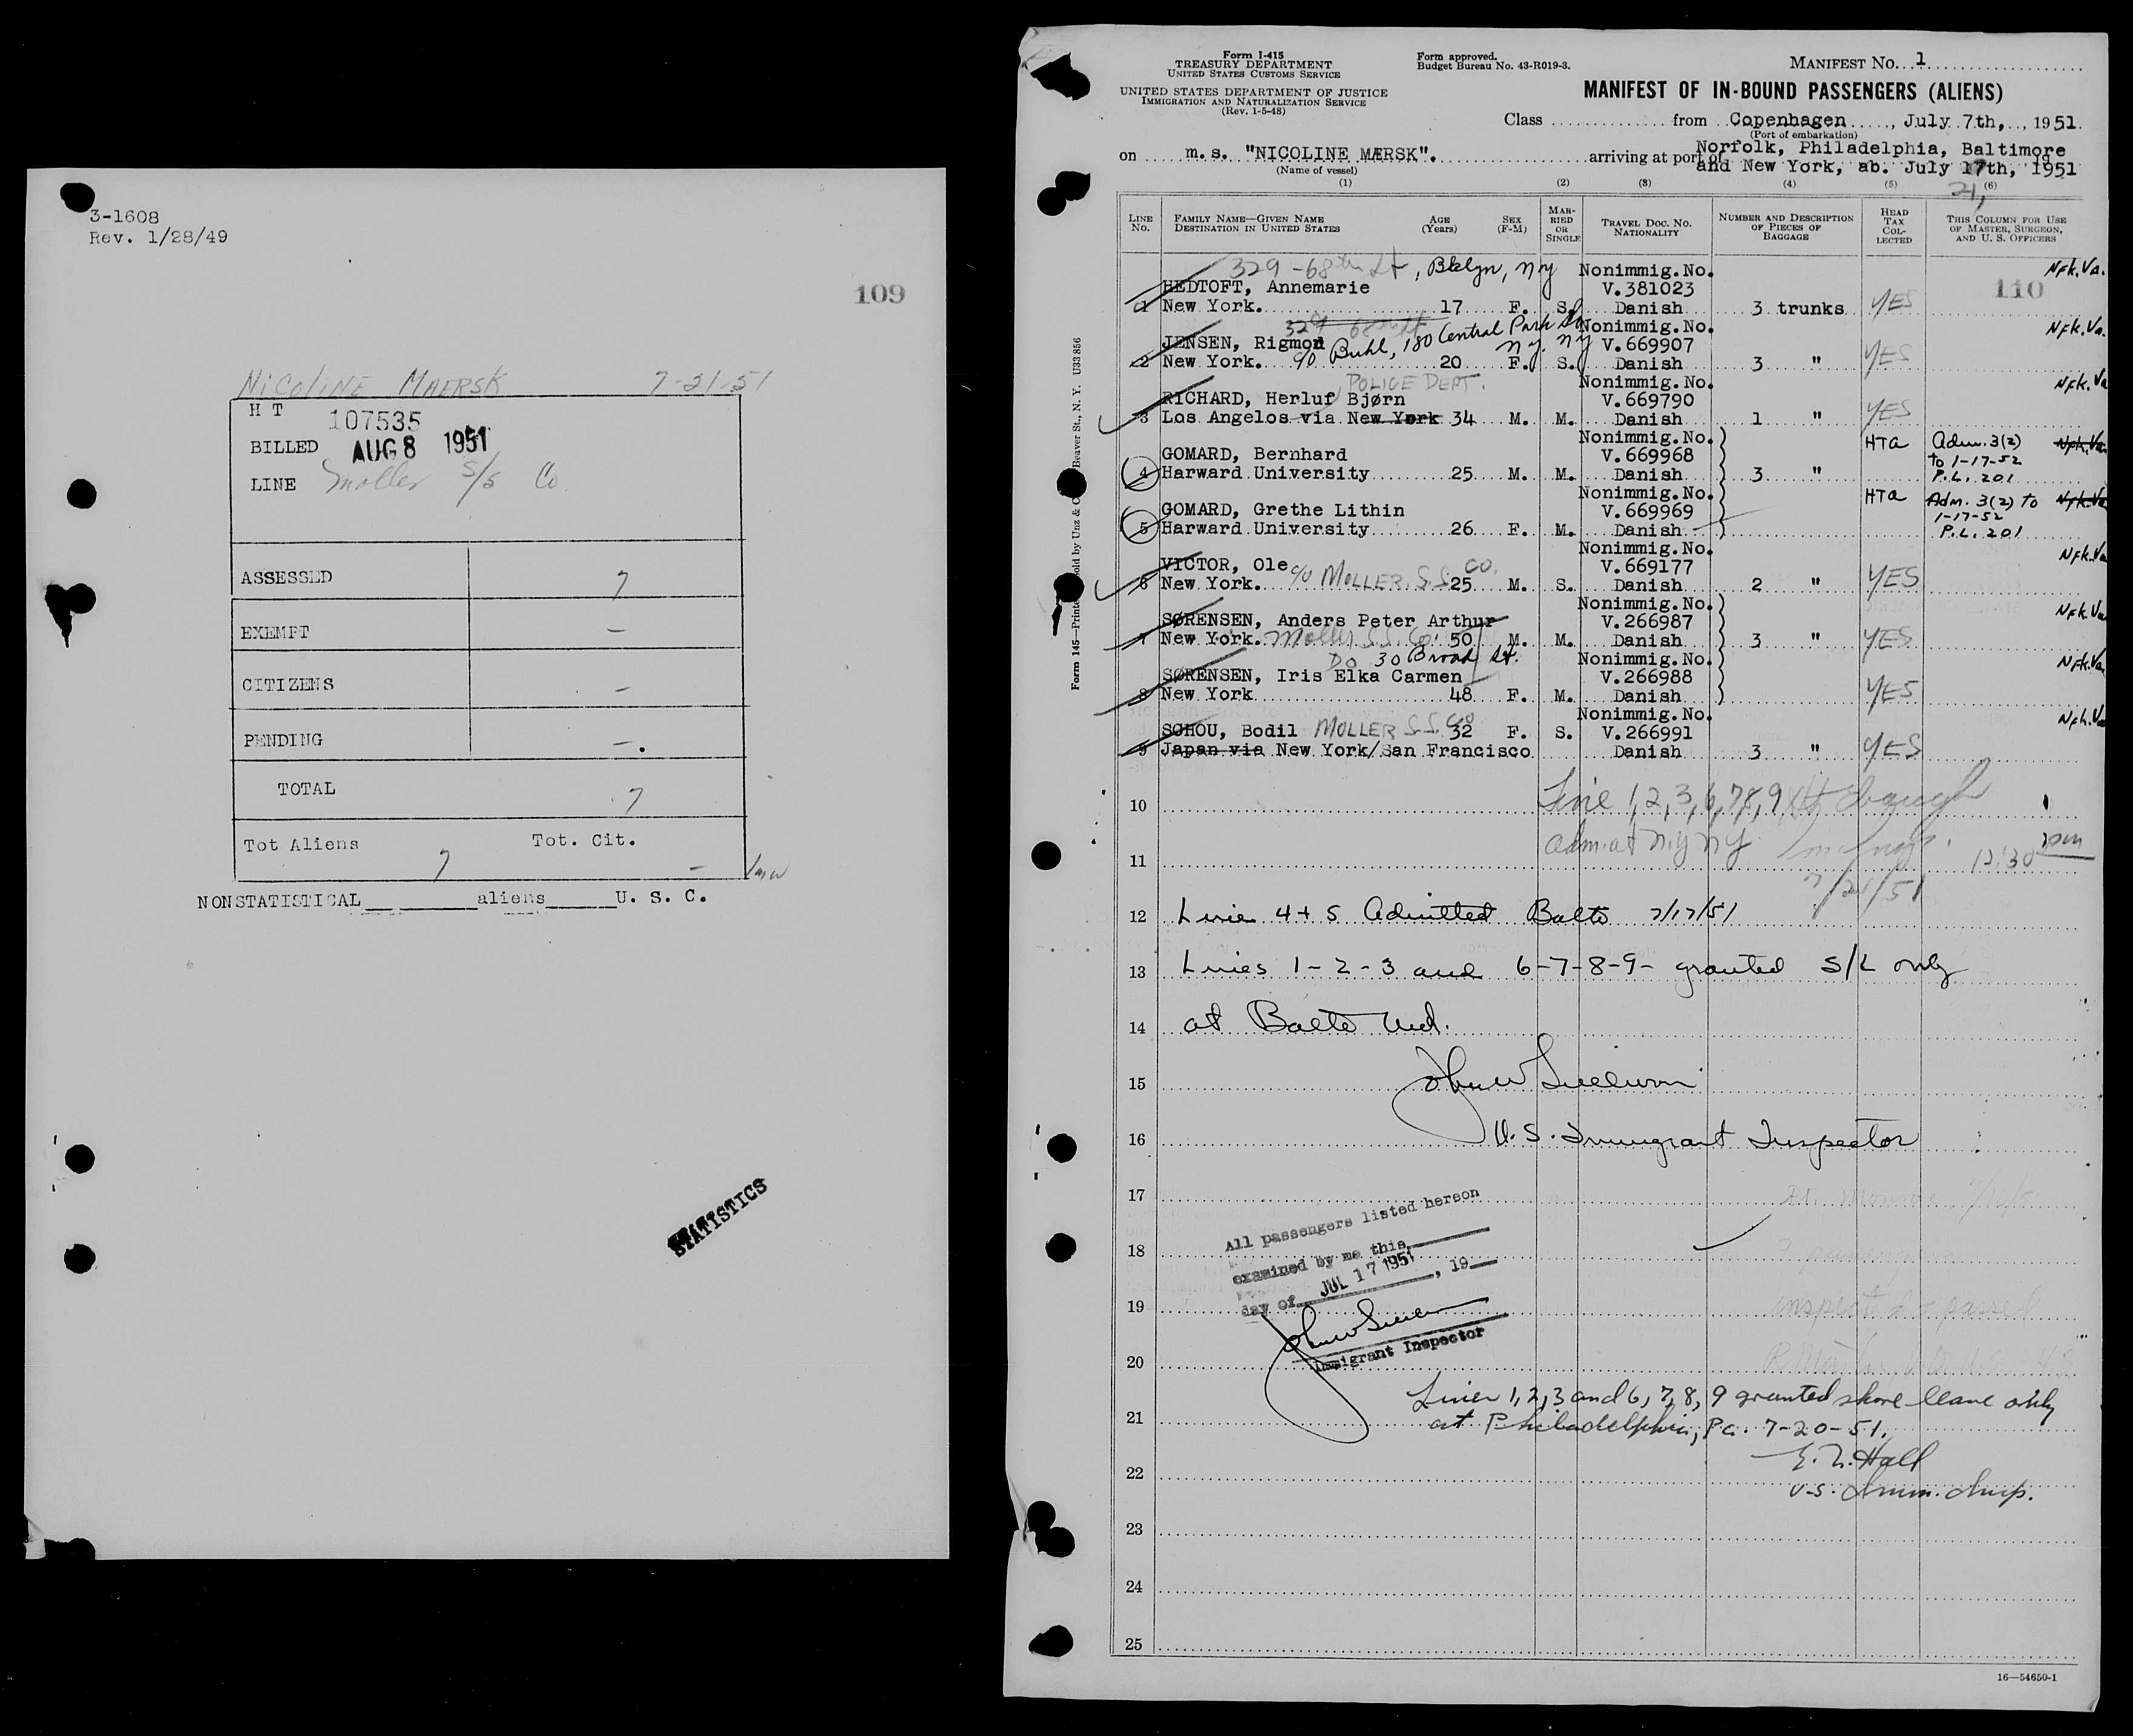 3-1608
Rev. 1/28/49
109
NICOLINE MAERSK 7-21-51
H T 107535
BILLED AUG 8 1951
LINE Moller S/S Co.
ASSESSED 7
EXEMPT -
CITIZENS -
PENDING -.
TOTAL 7
Tot Aliens 7 Tot. Cit. -
NONSTATISTICAL aliens U. S. C.
STATISTICS
Form I-415
TREASURY DEPARTMENT
UNITED STATES CUSTOMS SERVICE
UNITED STATES DEPARTMENT OF JUSTICE
IMMIGRATION AND NATURALIZATION SERVICE
(Rev. 1-5-48)
Form approved.
Budget Bureau No. 43-R019-3.
MANIFEST No. 1
MANIFEST OF IN-BOUND PASSENGERS (ALIENS)
Class from Copenhagen, July 7th, 1951.
(Port of embarkation)
on m.s. "NICOLINE MÆRSK". arriving at port of Norfolk, Philadelphia, Baltimore
and New York, ab. July 17th, 1951
21,
(Name of vessel)
(1) (2) (3) (4) (5) (6)
LINE No.
FAMILY NAME—GIVEN NAME
DESTINATION IN UNITED STATES
AGE (Years)
SEX (F-M)
MARRIED OR SINGLE
TRAVEL DOC. NO. NATIONALITY
NUMBER AND DESCRIPTION OF PIECES OF BAGGAGE
HEAD TAX COLLECTED
THIS COLUMN FOR USE OF MASTER, SURGEON, AND U. S. OFFICERS
110
329-68th St, Bklyn, NY Nonimmig.No. Nfk.Va.
HEDTOFT, Annemarie V.381023
1 New York. 17 F. S. Danish 3 trunks YES
329 68th St Nonimmig.No. Nfk.Va.
JENSEN, Rigmor c/o Buhl, 180 Central Park So. N.Y. NY V.669907
2 New York. 20 F. S. Danish 3 " YES
POLICE DEPT. Nonimmig.No. Nfk.Va
RICHARD, Herluf Bjørn V.669790
3 Los Angelos via New York 34 M. M. Danish 1 " YES
Nonimmig.No. HTa Adm. 3(2) Nfk.Va
GOMARD, Bernhard V.669968 to 1-17-52
4 Harward University 25 M. M. Danish 3 " P.L. 201
Nonimmig.No. HTa Adm. 3(2) to Nfk.Va
GOMARD, Grethe Lithin V.669969 1-17-52
5 Harward University 26 F. M. Danish P.L. 201
Nonimmig.No. Nfk.Va
VICTOR, Ole c/o MOLLER S.S. CO. V.669177
6 New York. 25 M. S. Danish 2 " YES
Nonimmig.No. Nfk.Va
SØRENSEN, Anders Peter Arthur V.266987
7 New York. Moller S.S. Co. 50 M. M. Danish 3 " YES
Do 30 Broad St. Nonimmig.No. Nfk.Va
SØRENSEN, Iris Elka Carmen V.266988
8 New York 48 F. M. Danish YES
Nonimmig.No. Nfk.Va
SCHOU, Bodil MOLLER S.S. Co 32 F. S. V.266991
9 Japan via New York/San Francisco Danish 3 " YES
10 Line 1,2,3,6,7,8,9
11 adm. at N.Y NY 12:30 pm
12 Line 4+5 Admitted Balto 7/17/51
13 Lines 1-2-3 and 6-7-8-9- granted S/L only
14 at Balto Md.
15 John W Sullivan
16 U.S. Immigrant Inspector
17
All passengers listed hereon
18
examined by me this
day of JUL 17 1951, 19
19 inspected & passed
20
Immigrant Inspector
Lines 1,2,3 and 6,7,8,9 granted shore leave only
21 at Philadelphia, Pa. 7-20-51.
22 E. Hall
U.S. Imm. Insp.
23
24
25
16—54650-1
Form 145—Printed
Sold by Unz & C
Beaver St., N. Y. U33856